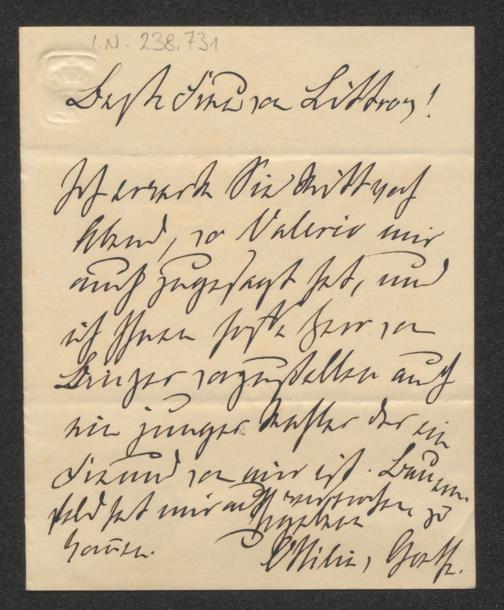 I.N. 238.731
Beste Frau von Littrow!
Ich erwarte Sie Mittwoch
Abend, wo Valerie mir
auch zugesagt hat, und
ich Ihnen hoffe Herr von
Binzer vorzustellen auch
ein junger Mahler der ein
Freund von mir ist. Bauern-
feld hat mir auch versprochen zu
kommen.
Ottilie v Goethe.